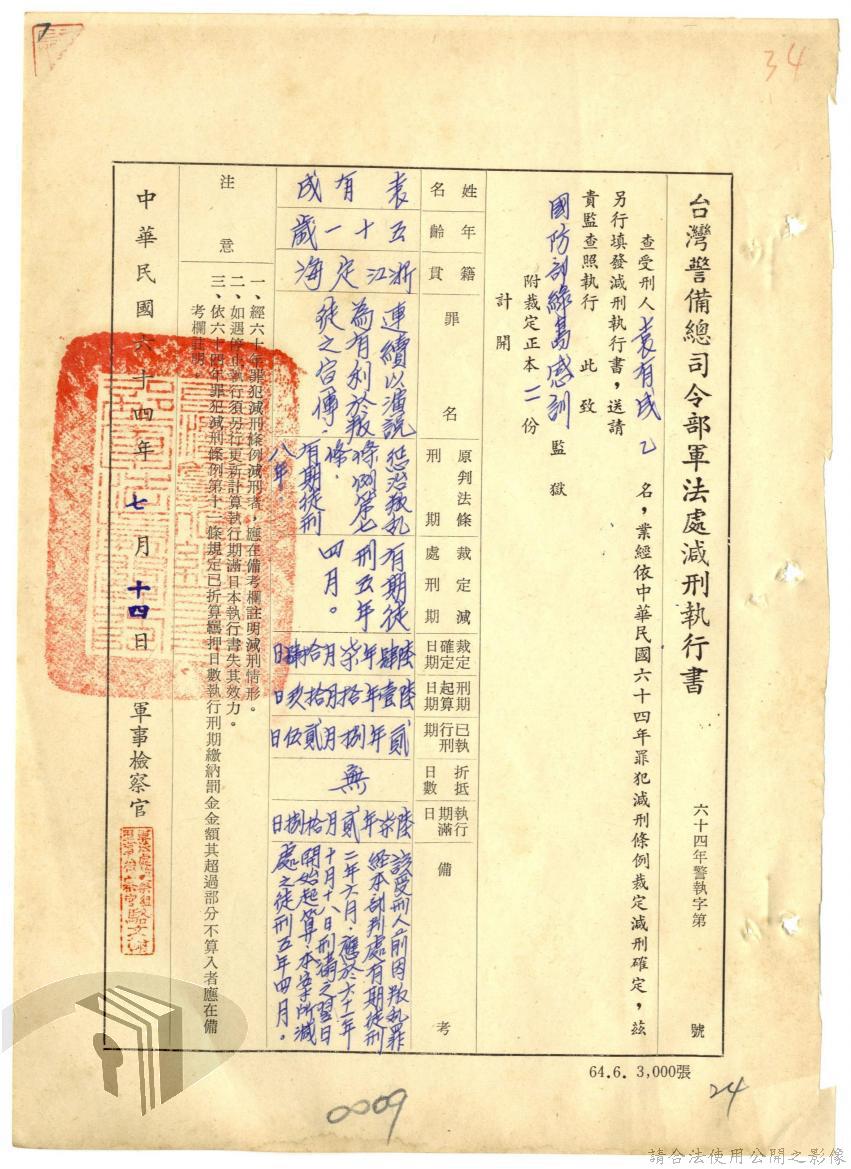 34
台灣警備總司令部軍法處減刑執行書
六十四年警執字第　　號
查受刑人袁有成乙名，業經依中華民國六十四年罪犯減刑條例裁定減刑確定，茲
另行填發減刑執行書，送請
貴監查照執行　此致
國防部綠島感訓監獄
附裁定正本二份
計開
姓名
袁有成
年齡
五十一歲
籍貫
浙江定海
罪名
連續以演說
為有利於叛
徒之宣傳。
原判法條
刑期
懲治叛亂
條例第七
條．
有期徒刑
八年。
裁定減
處刑期
有期徒
刑五年
四月。
裁定確定日期
陸肆年柒月拾肆日
刑期起算日期
陸壹年拾月拾玖日
已執行刑期
貳年捌月貳伍日
折抵日數
無
執行期滿日
陸柒年貳月拾捌日
備考
該受刑人前因叛亂罪
經本部判處有期徒刑
二年六月，應於六十一年
十月十八日刑滿之翌日
開始起算，本案所減
處之徒刑五年四月。
注意
一、經六十年罪犯減刑條例減刑者，應在備考欄註明減刑情形。
二、如遇停止執行須另行更新計算執行期滿日本執行書失其效力。
三、依六十四年罪犯減刑條例第十一條規定已折算羈押日數執行刑期繳納罰金金額其超過部分不算入者應在備
考欄註明。
中華民國六十四年七月十四日
軍事檢察官
64.6. 3,000張
24
0009
請合法使用公開之影像